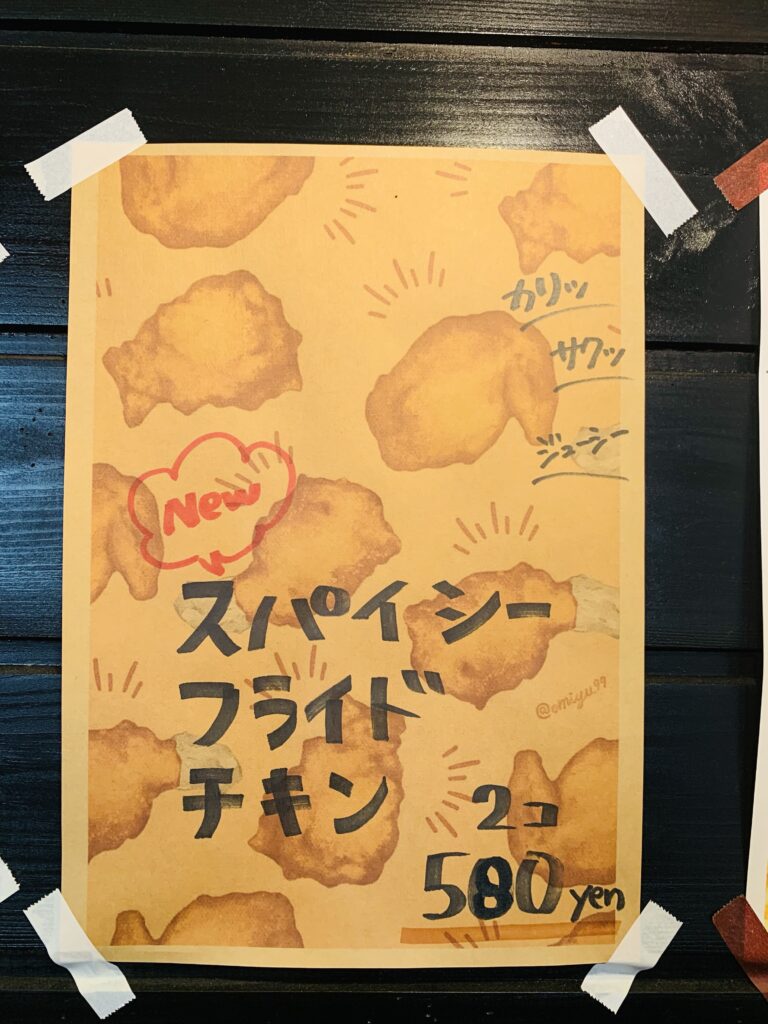 カリッ
サクッ
ジューシー
New
スパイシー
フライド
チキン
@omiyu99
2コ
580 yen